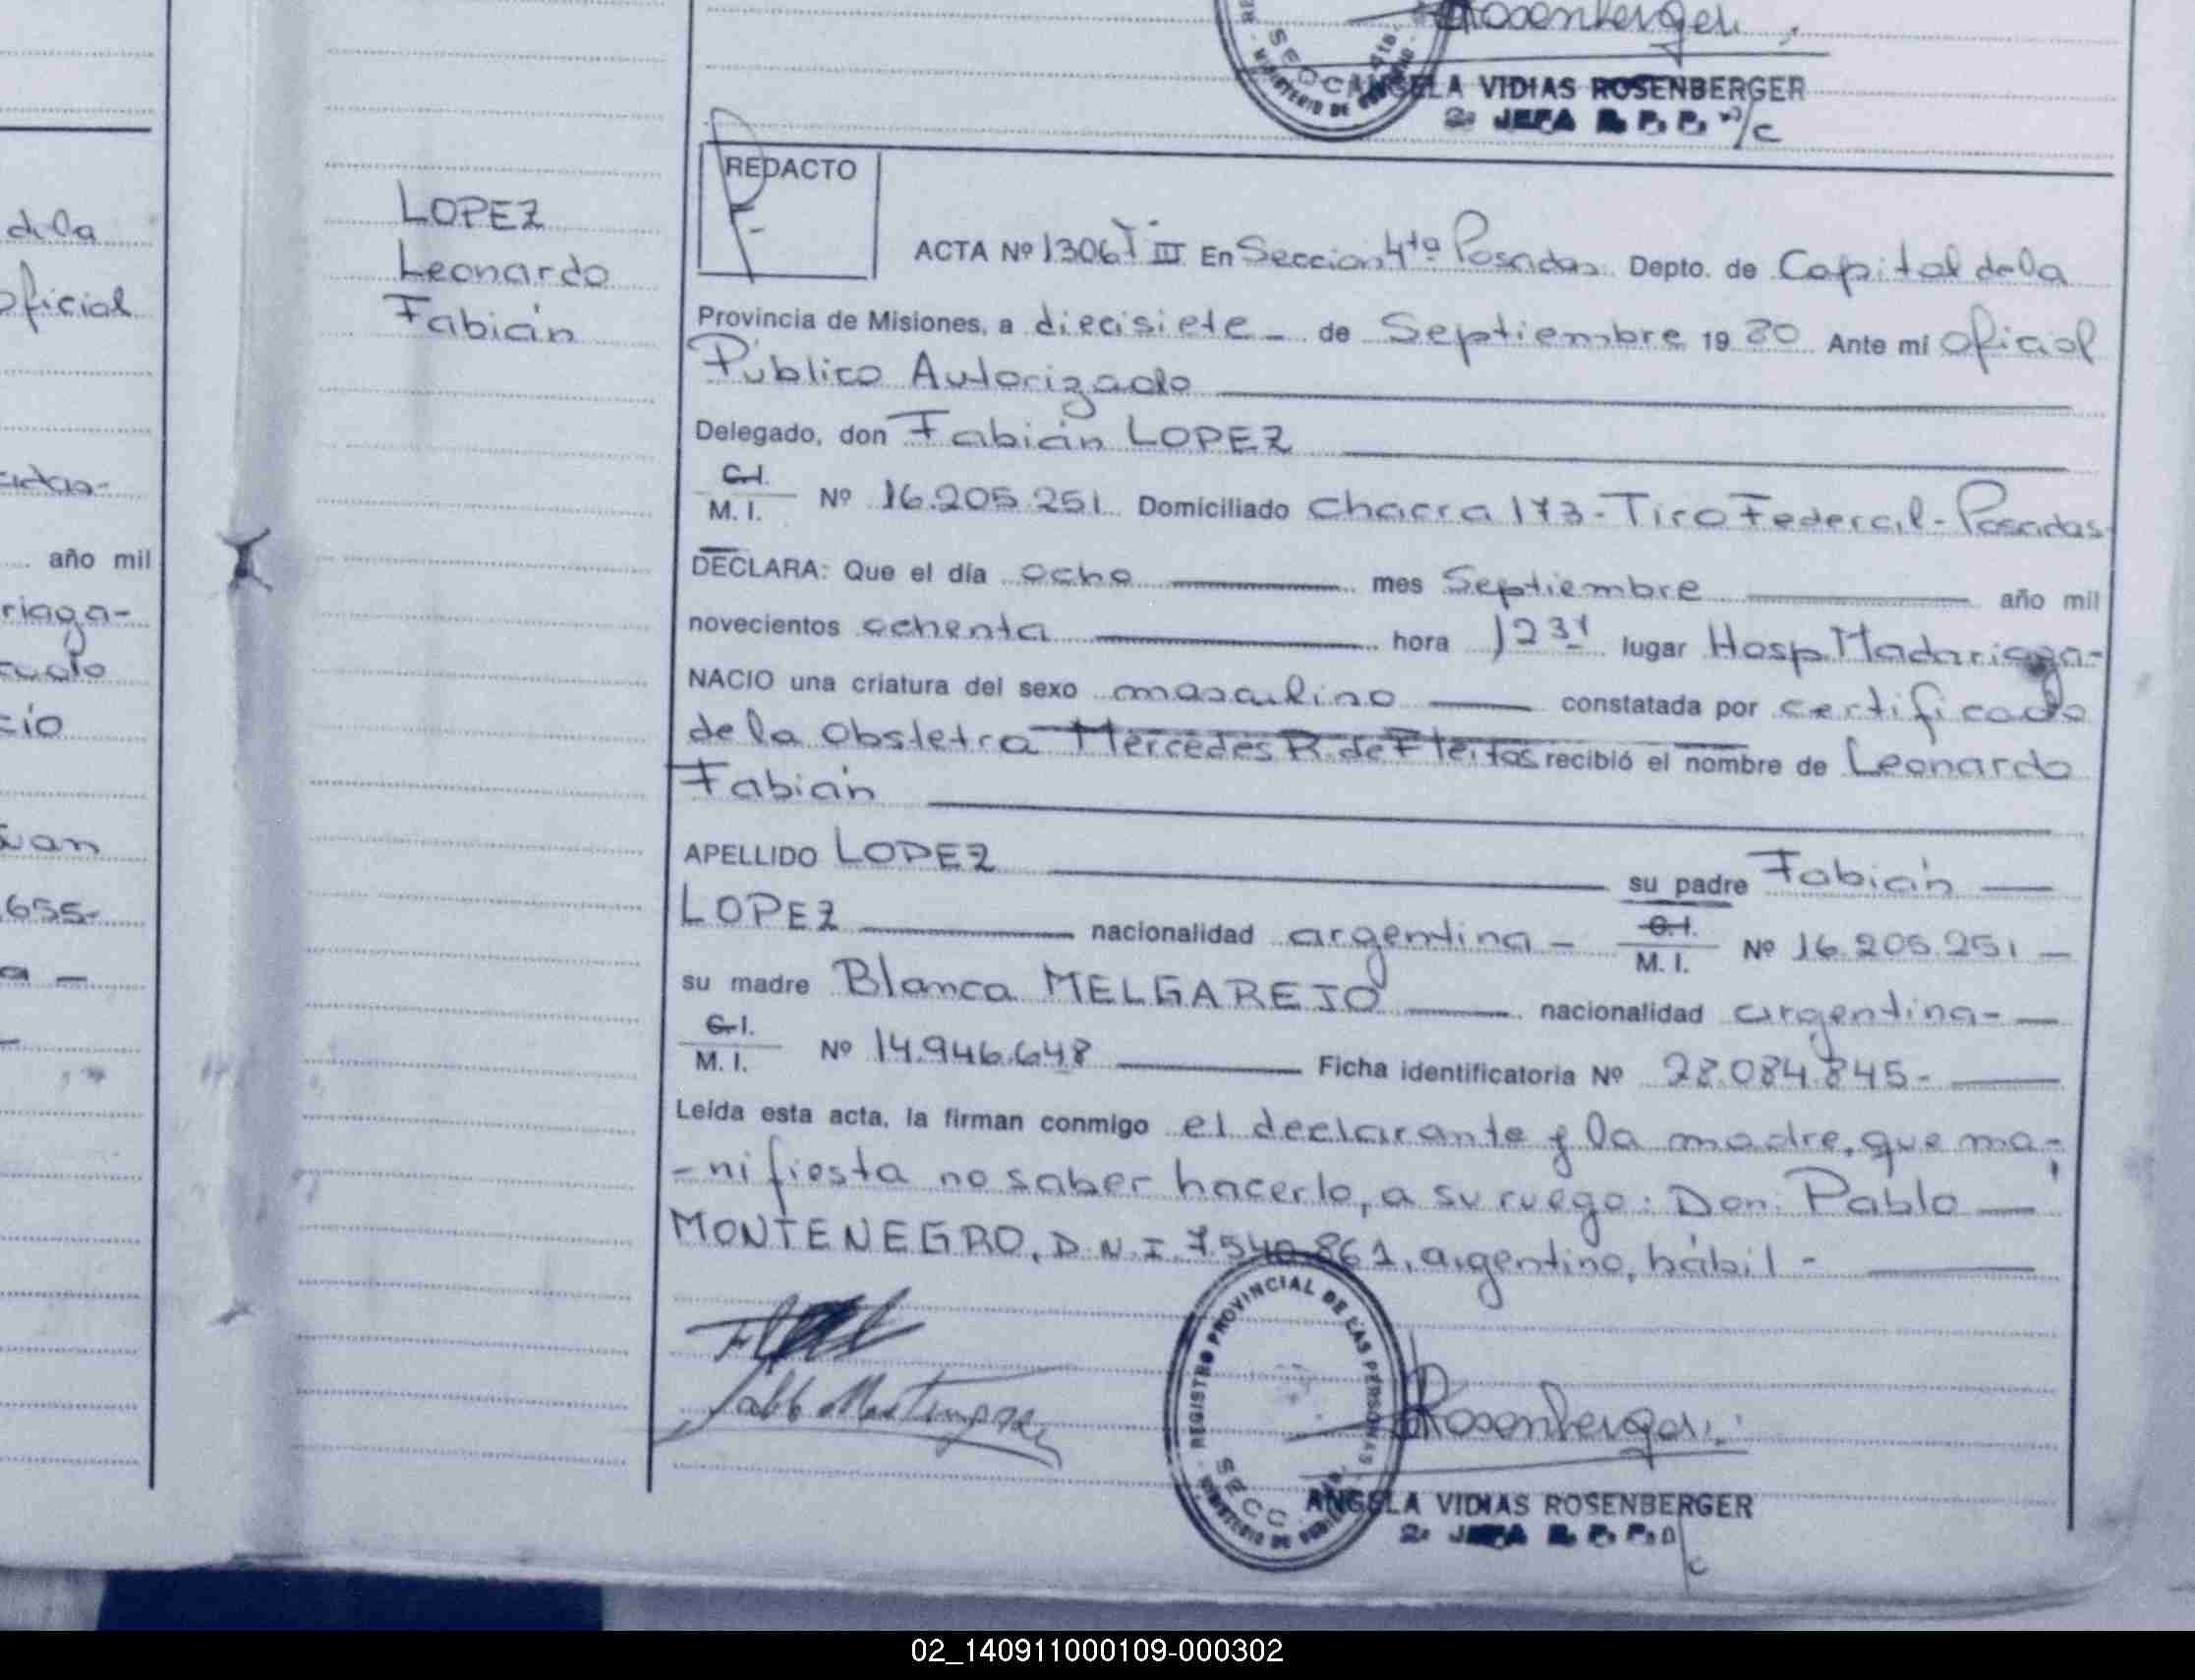 Rosenberger
ANGELA VIDIAS ROSENBERGER
2ª JEFA R. P. P. a/c
REDACTO
LOPEZ
Leonardo
Fabián
ACTA Nº 1306 T III En Seccion 4ta Posadas Depto. de Capital de la
Provincia de Misiones, a diecisiete - de Septiembre 19 80 Ante mi Oficial
Público Autorizado
Delegado, don Fabián LOPEZ
C.I.
M. I. Nº 16.205.251 Domiciliado Chacra 173 - Tiro Federal - Posadas
DECLARA: Que el día ocho mes Septiembre año mil
novecientos ochenta hora 1231 lugar Hosp. Madariaga-
NACIO una criatura del sexo masculino constatada por certificado
de la Obstetra Mercedes R. de Fleitas recibió el nombre de Leonardo
Fabián
APELLIDO LOPEZ su padre Fabián
LOPEZ nacionalidad argentina - C.I.
M. I. Nº 16.205.251
su madre Blanca MELGAREJO nacionalidad argentina-
C.I.
M. I. Nº 14.946.648 Ficha identificatoria Nº 28.084.845-
Leída esta acta, la firman conmigo el declarante y la madre, que ma-
-nifiesta no saber hacerlo, a su ruego: Don: Pablo
MONTENEGRO, D.N.I. 7.540.861, argentino, hábil -
REGISTRO PROVINCIAL DE LAS PERSONAS
SECC
MINISTERIO DE GOBIERNO
Rosenberger
ANGELA VIDIAS ROSENBERGER
2ª JEFA R. P. P. a/c
de la
oficial
año mil
riaga-
cio
655-
02_140911000109-000302